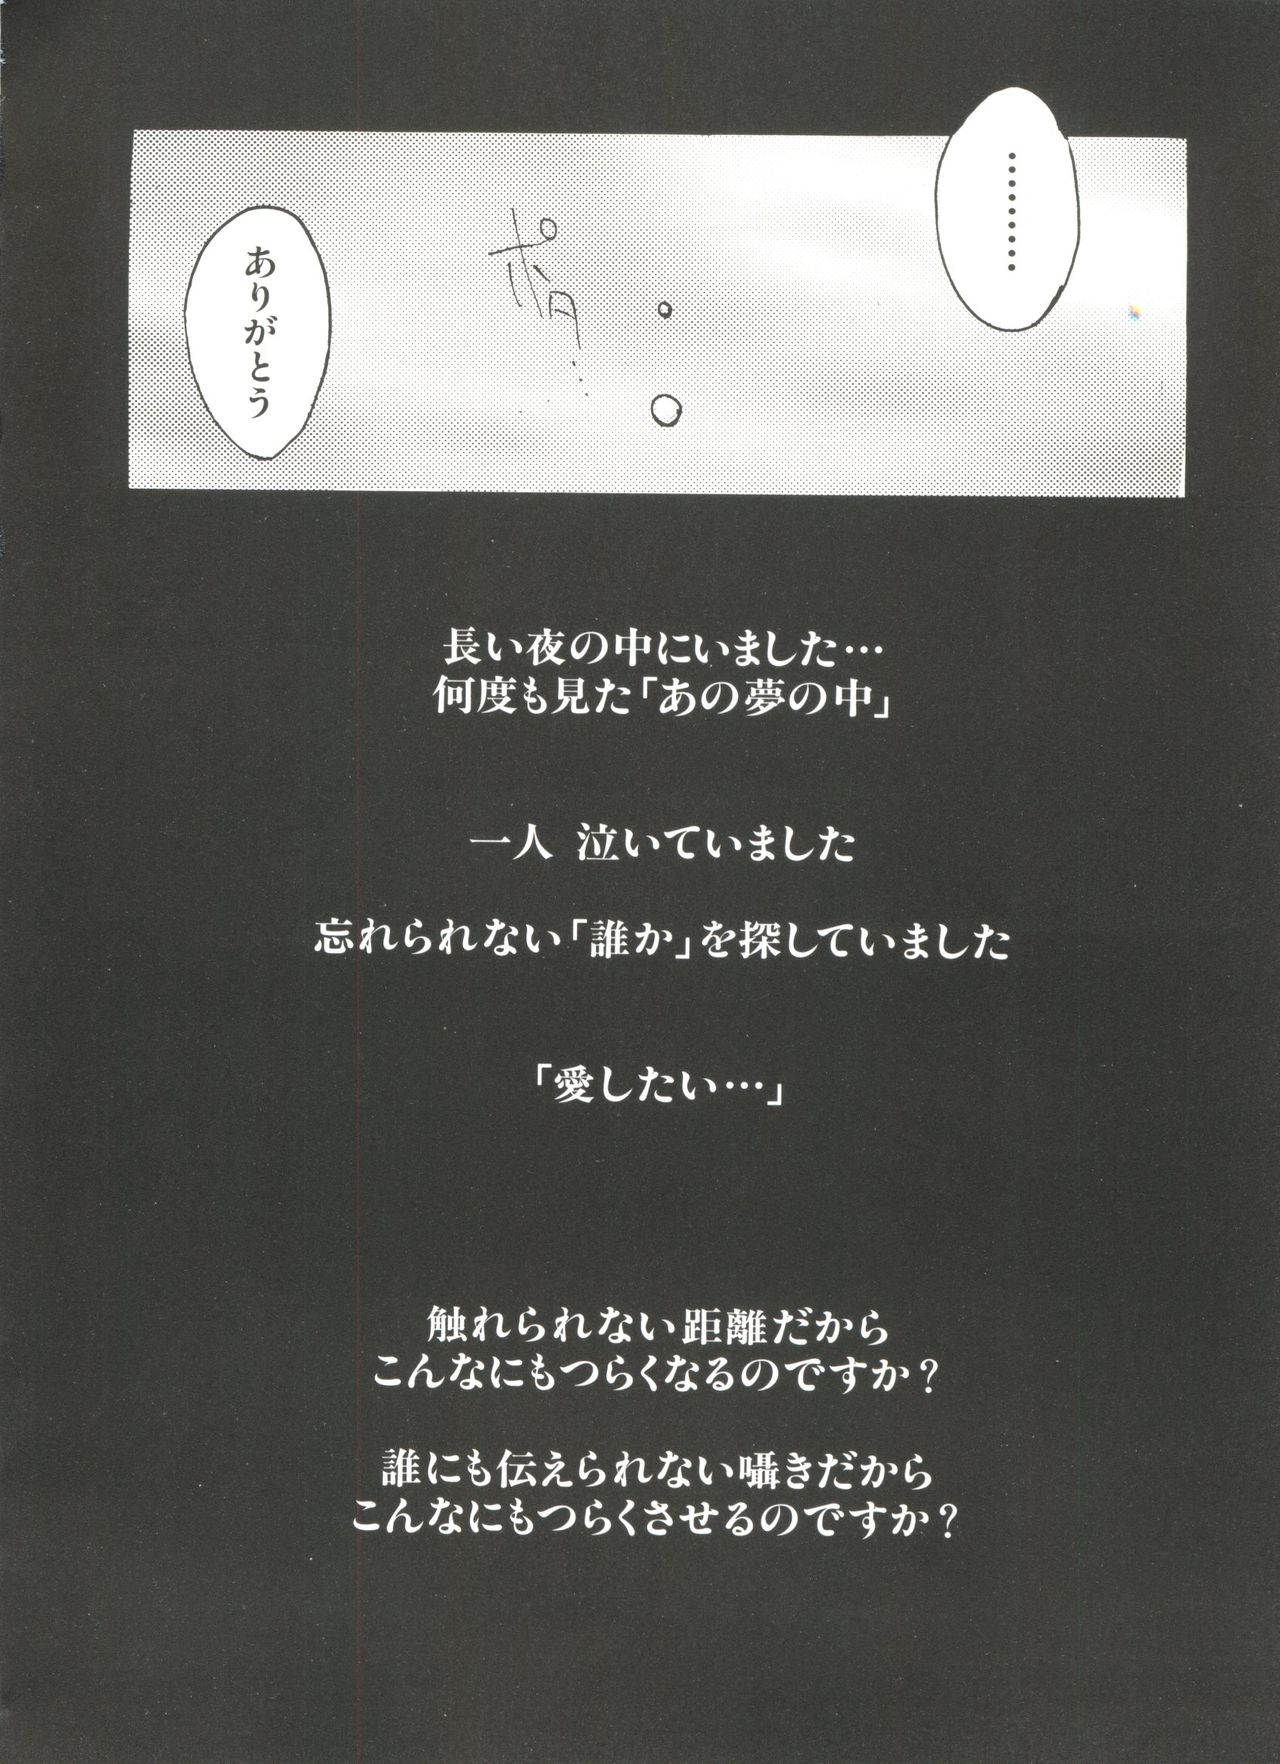 ………
ポタ…
ありがとう
長い夜の中にいました…
何度も見た「あの夢の中」
一人 泣いていました
忘れられない「誰か」を探していました
「愛したい…」
触れられない距離だから
こんなにもつらくなるのですか？
誰にも伝えられない囁きだから
こんなにもつらくさせるのですか？